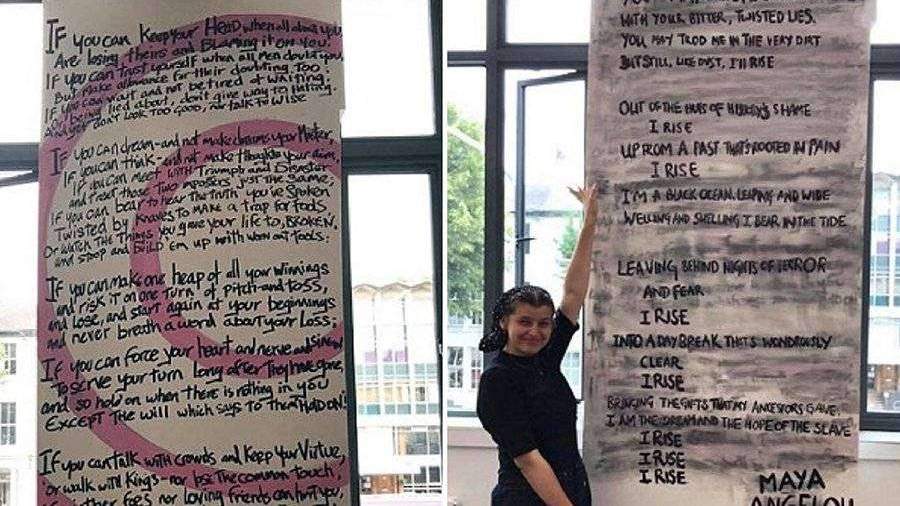 IF you can keep your HEAD when all about you
Are losing theirs and Blaming it on you.
If you can trust yourself when all men doubt you,
But make allowance for their doubting too:
If you can wait and not be tired of waiting.
being lied about, don't give way to Hating.
And yet don't look too GOOD, nor talk to WISE
IF you can dream-and not make dreams your Master,
If you can think-and not make thoughts your aim,
If you can meet with Triumph and Disaster
and treat those Two imposters JUST The Same
if you can bear to Hear The Truth you've Spoken
Twisted by Knaves to MAKE a TRAP for fools
Or watch The Things you gave your life to, BROKEN.
and stoop and BUILD 'EM up with worn out Tools:
If you can make one heap of all your Winnings
and risk it on one Turn of pitch-and-toss,
and Lose, and start again at your beginnings
and never breath a word about your Loss;
If you can force your heart and nerve and sinew
To serve your turn Long after They have gone,
and so hold on when there is nothing in you
EXCEPT THE Will which says to Them HOLD ON!
If you can talk with crowds and keep your Virtue,
or walk with Kings-nor lose the common Touch,
foes nor loving friends can hurt you,
WITH YOUR BITTER, TWISTED LIES.
YOU MAY TROD ME IN THE VERY DIRT
BUT STILL, LIKE DUST, I'LL RISE
OUT OF THE HUTS OF HISTORY'S SHAME
I RISE
UP FROM A PAST THAT'S ROOTED IN PAIN
I RISE
I'M A BLACK OCEAN, LEAPING AND WIDE
WELLING AND SWELLING I BEAR IN THE TIDE
LEAVING BEHIND NIGHTS OF TERROR
AND FEAR
I RISE
INTO A DAY BREAK THAT'S WONDROUSLY
CLEAR
I RISE
BRINGING THE GIFTS THAT MY ANCESTORS GAVE,
I AM THE DREAM AND THE HOPE OF THE SLAVE
I RISE
I RISE
I RISE
MAYA
ANGELOU